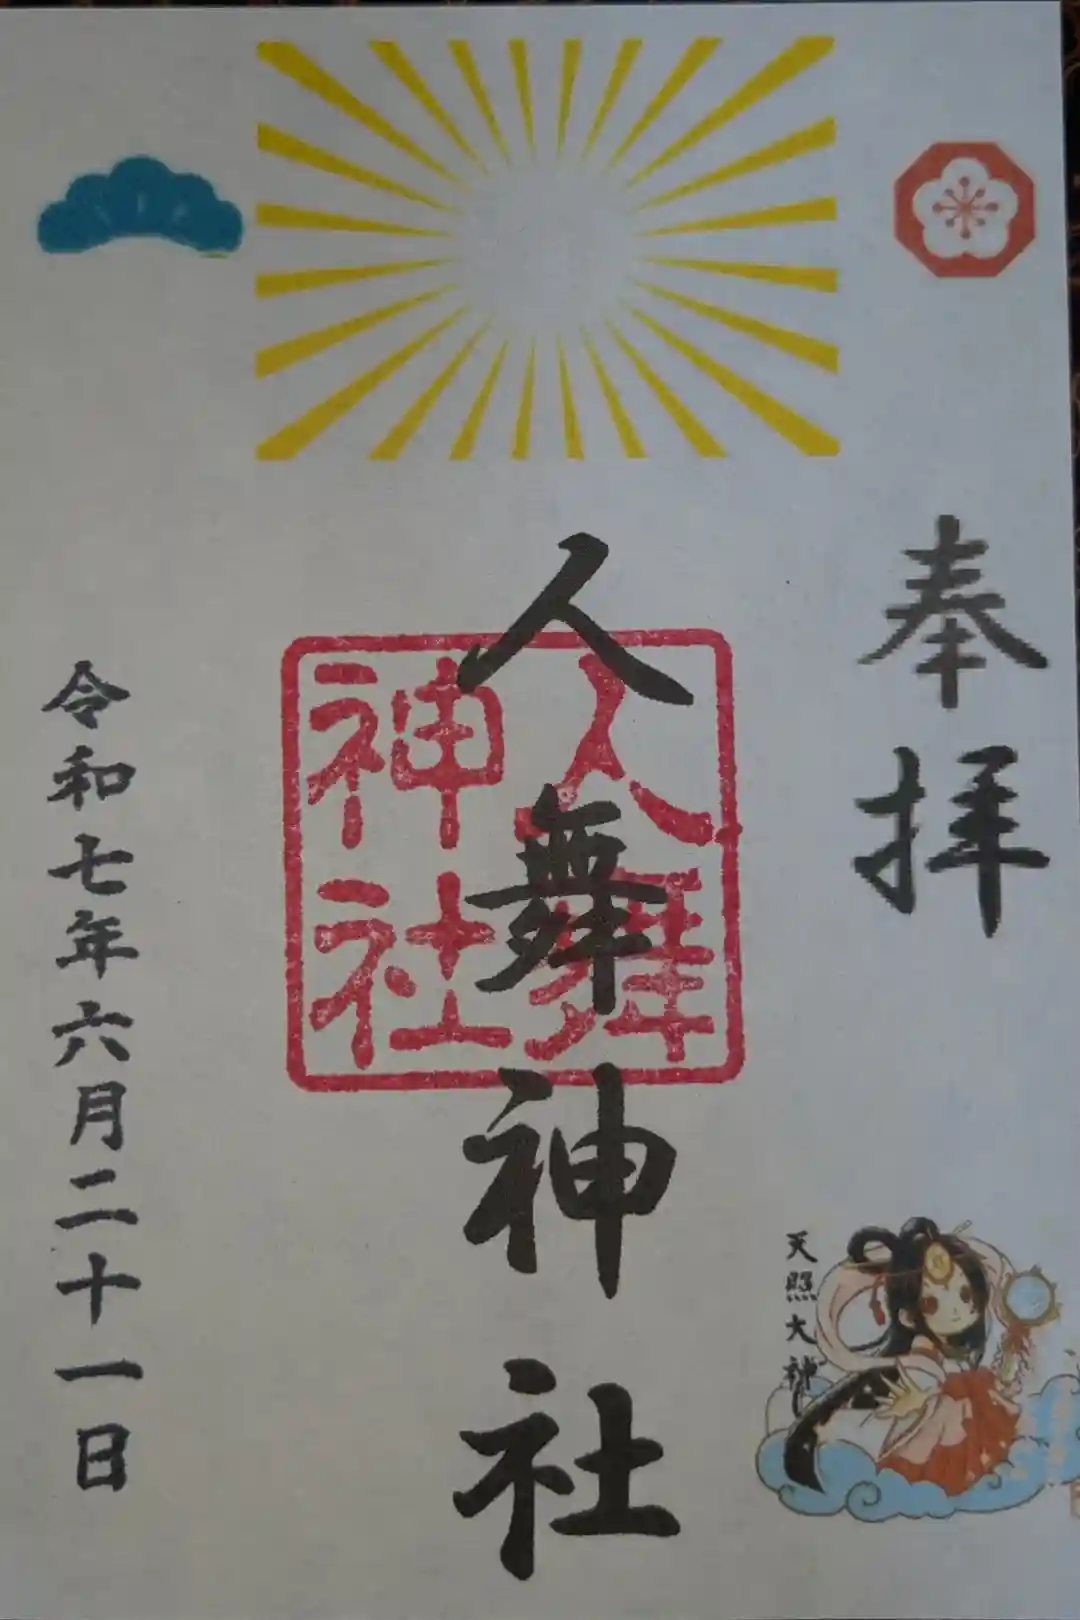 奉拝
天照大神
人舞神社
人舞
神社
令和七年六月二十一日